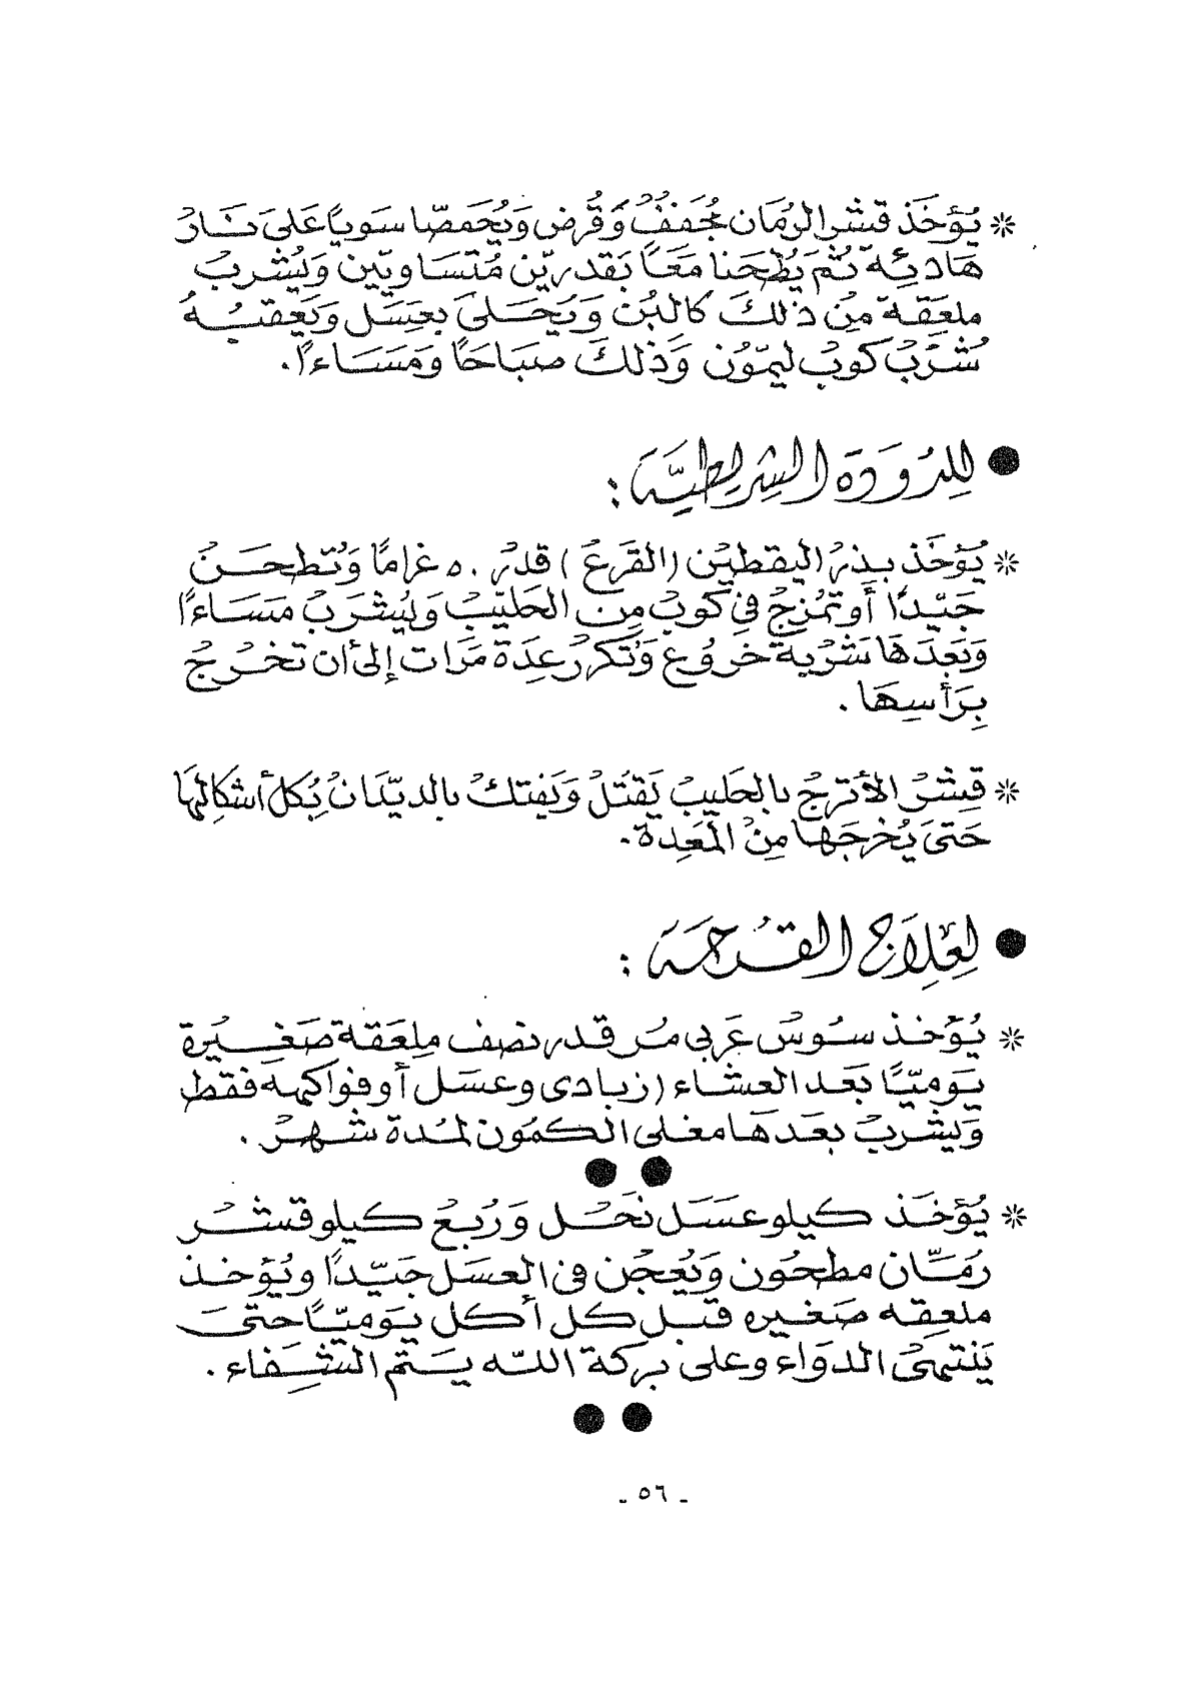 * يُؤخَذ قشر الرُمَان مُجَففْ وَقُرض وَيُحَمصّا سَوياً عَلىَ نَارْ
هَادئِة ثُمَ يُطْحَنا مَعَاً بَقدريّن مُتَسَاويّين وَيُشربْ
ملعَقة مِن ذلكَ كالبُن وَيَحَلىَ بعِسَل وَيَعقبُهُ
شُرَبْ كوبْ ليمّوُن وَذلكَ صبَاحًا وَمَسَاءًا.
● للدُودَة الشِريطيَّة :
* يُؤخَذ بذرُ اليقطيْن (القَرَعَ) قدرْ ٥٠ غرامًا وَتُطحَنْ
جَيّدًا أو تمُزجُ في كوبْ مِن الحَليّبْ وَيُشرَبْ مَسَاءًا
وَبَعَدَهَا شَرْبة خروُع وَتَكررُ عِدَة مَرَات إلى أن تخرُجُ
بِرَأسِهَا .
* قِشرْ الأترجُ بالحَليبْ يَقتَلْ وَيَفتكْ بالديّدَانْ بِكُل أشكالِهَا
حَتىَ يُخرجَهَا مِنْ المَعِدة.
● لعِلاج القُرحَة :
* يُؤخذ سُوسْ عَربي مُر قدر نصف مِلعَقة صَغيُرة
يَوميّاً بَعَد العشَاء (زبادى وعسَل أو فواكهه فقط
وَيشربْ بعَدهَا مغلى الكمُون لمُدة شهرْ .
● ●
* يُؤخَذ كيلو عسَل نحَل وَرُبعُ كيلو قشرْ
رُمَّان مطحُون وَيُعجُن فى العسَل جَيّدًا ويُؤخذ
ملعقه صَغيره قبل كل أكل يَوميّاً حتىَ
يَنتهىُ الدوَاء وعلى بركة اللّه يَتم الشِفَاء .
● ●
- ٥٦ -